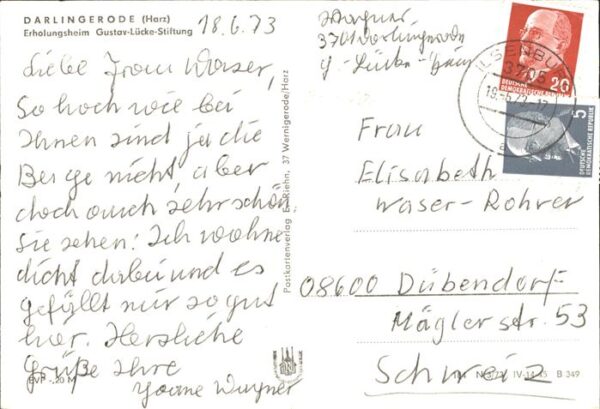 DARLINGERODE (Harz)
Erholungsheim Gustav-Lücke-Stiftung
18.6.73
Liebe Frau Waser,
So hoch wie bei
Ihnen sind ja die
Berge nicht, aber
doch auch sehr schön
Sie sehen: Ich wohne
dicht dabei und es
gefällt mir so gut
hier. Herzliche
Grüße Ihre
Wagner
EVP -,20 M
Postkartenverlag E. Riehn, 37 Wernigerode/Harz
Wagner
3701 Darlingerode
G.-Lücke-
ILSENBURG
3705
19.-6.73.-17
20
DEUTSCHE
DEMOKRATISCHE REPUBLIK
5
DEUTSCHE
DEMOKRATISCHE REPUBLIK
Frau
Elisabeth
Waser-Rohrer
08600 Dübendorf
Mäglerstr. 53
Schweiz
IV-14-45 B 349